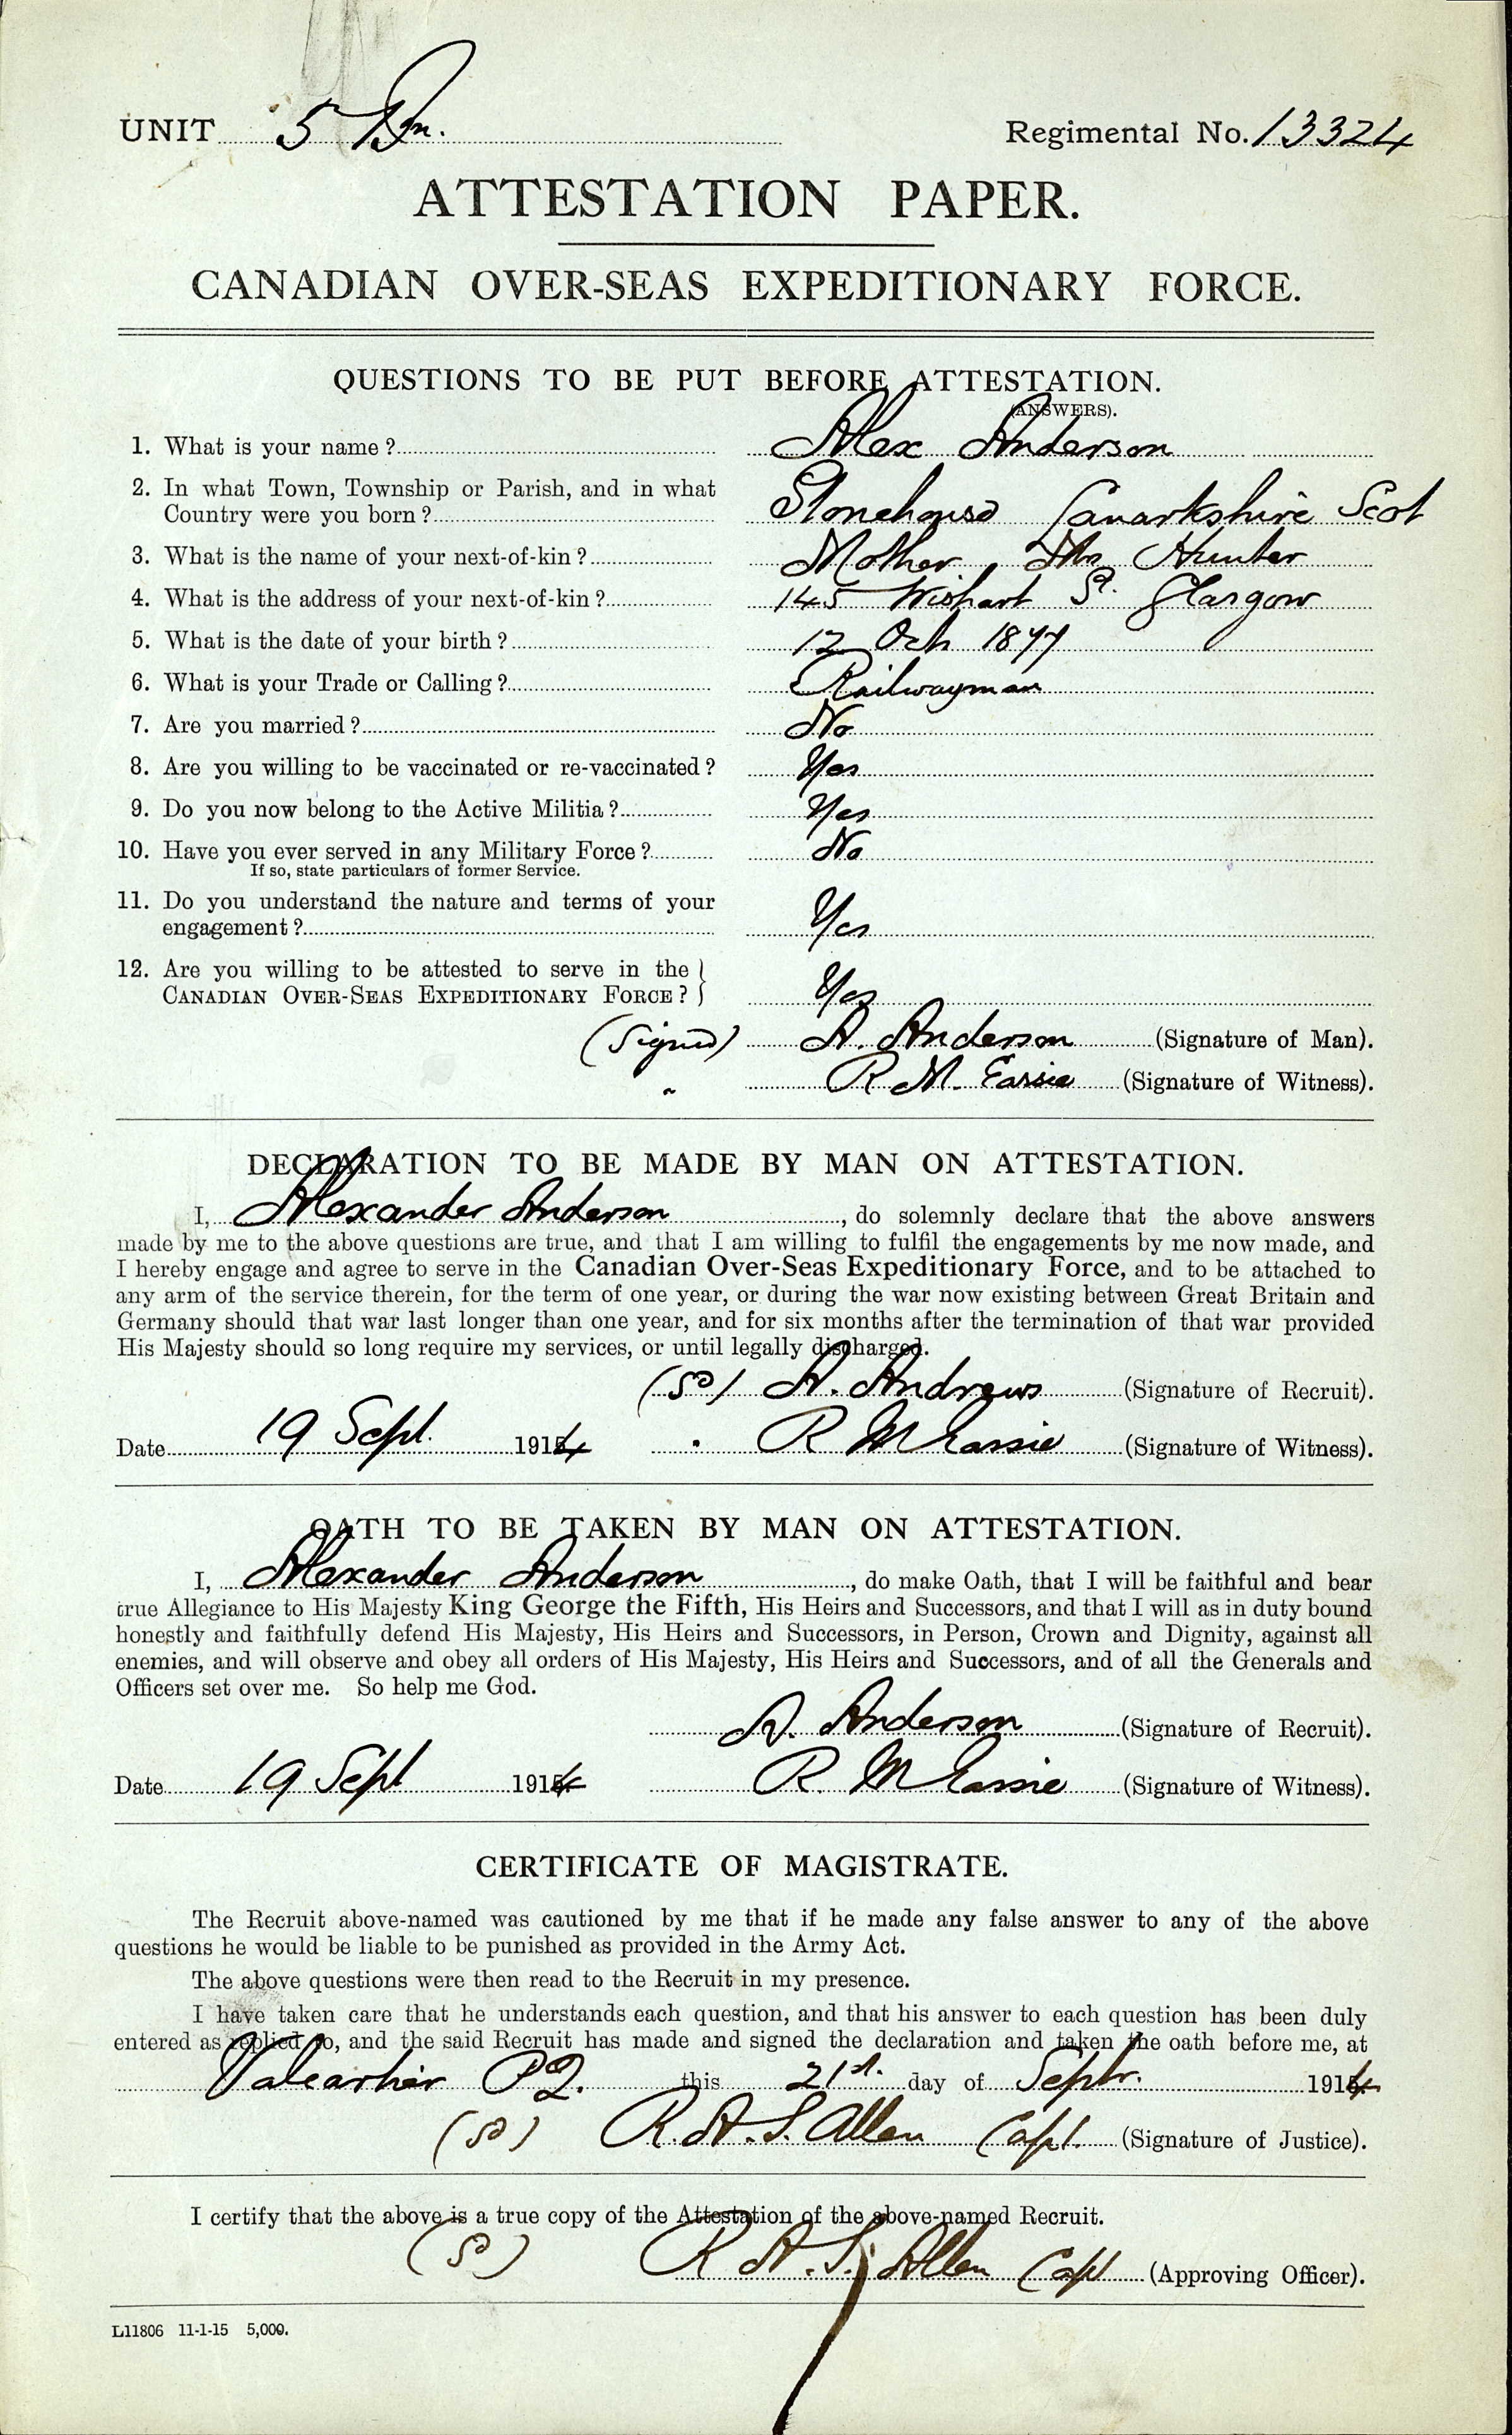 UNIT 5 Bn. Regimental No. 13324
ATTESTATION PAPER.
CANADIAN OVER-SEAS EXPEDITIONARY FORCE.
QUESTIONS TO BE PUT BEFORE ATTESTATION.
(ANSWERS).
1. What is your name? Alex Anderson
2. In what Town, Township or Parish, and in what
Country were you born? Stonehouse Lanarkshire Scot
3. What is the name of your next-of-kin? Mother, Mrs Hunter
4. What is the address of your next-of-kin? 145 Wishart St. Glasgow
5. What is the date of your birth? 12 Oct 1877
6. What is your Trade or Calling? Railwayman
7. Are you married? No
8. Are you willing to be vaccinated or re-vaccinated? Yes
9. Do you now belong to the Active Militia? Yes
10. Have you ever served in any Military Force? No
If so, state particulars of former Service.
11. Do you understand the nature and terms of your
engagement? Yes
12. Are you willing to be attested to serve in the
CANADIAN OVER-SEAS EXPEDITIONARY FORCE? Yes
(Signed) A. Anderson (Signature of Man).
" R M. Eassie (Signature of Witness).
DECLARATION TO BE MADE BY MAN ON ATTESTATION.
I, Alexander Anderson, do solemnly declare that the above answers
made by me to the above questions are true, and that I am willing to fulfil the engagements by me now made, and
I hereby engage and agree to serve in the Canadian Over-Seas Expeditionary Force, and to be attached to
any arm of the service therein, for the term of one year, or during the war now existing between Great Britain and
Germany should that war last longer than one year, and for six months after the termination of that war provided
His Majesty should so long require my services, or until legally discharged.
(SD) A. Andrews (Signature of Recruit).
Date 19 Sept 1914 " R M Eassie (Signature of Witness).
OATH TO BE TAKEN BY MAN ON ATTESTATION.
I, Alexander Anderson, do make Oath, that I will be faithful and bear
true Allegiance to His Majesty King George the Fifth, His Heirs and Successors, and that I will as in duty bound
honestly and faithfully defend His Majesty, His Heirs and Successors, in Person, Crown and Dignity, against all
enemies, and will observe and obey all orders of His Majesty, His Heirs and Successors, and of all the Generals and
Officers set over me. So help me God.
A. Anderson (Signature of Recruit).
Date 19 Sept 1914 R. M Eassie (Signature of Witness).
CERTIFICATE OF MAGISTRATE.
The Recruit above-named was cautioned by me that if he made any false answer to any of the above
questions he would be liable to be punished as provided in the Army Act.
The above questions were then read to the Recruit in my presence.
I have taken care that he understands each question, and that his answer to each question has been duly
entered as replied to, and the said Recruit has made and signed the declaration and taken the oath before me, at
Valcartier P Q. this 21st. day of Septr. 1914
(SD) R. A. S. Allen Capt. (Signature of Justice).
I certify that the above is a true copy of the Attestation of the above-named Recruit.
(SD) R A. S. Allen Capt (Approving Officer).
L11806 11-1-15 5,000.